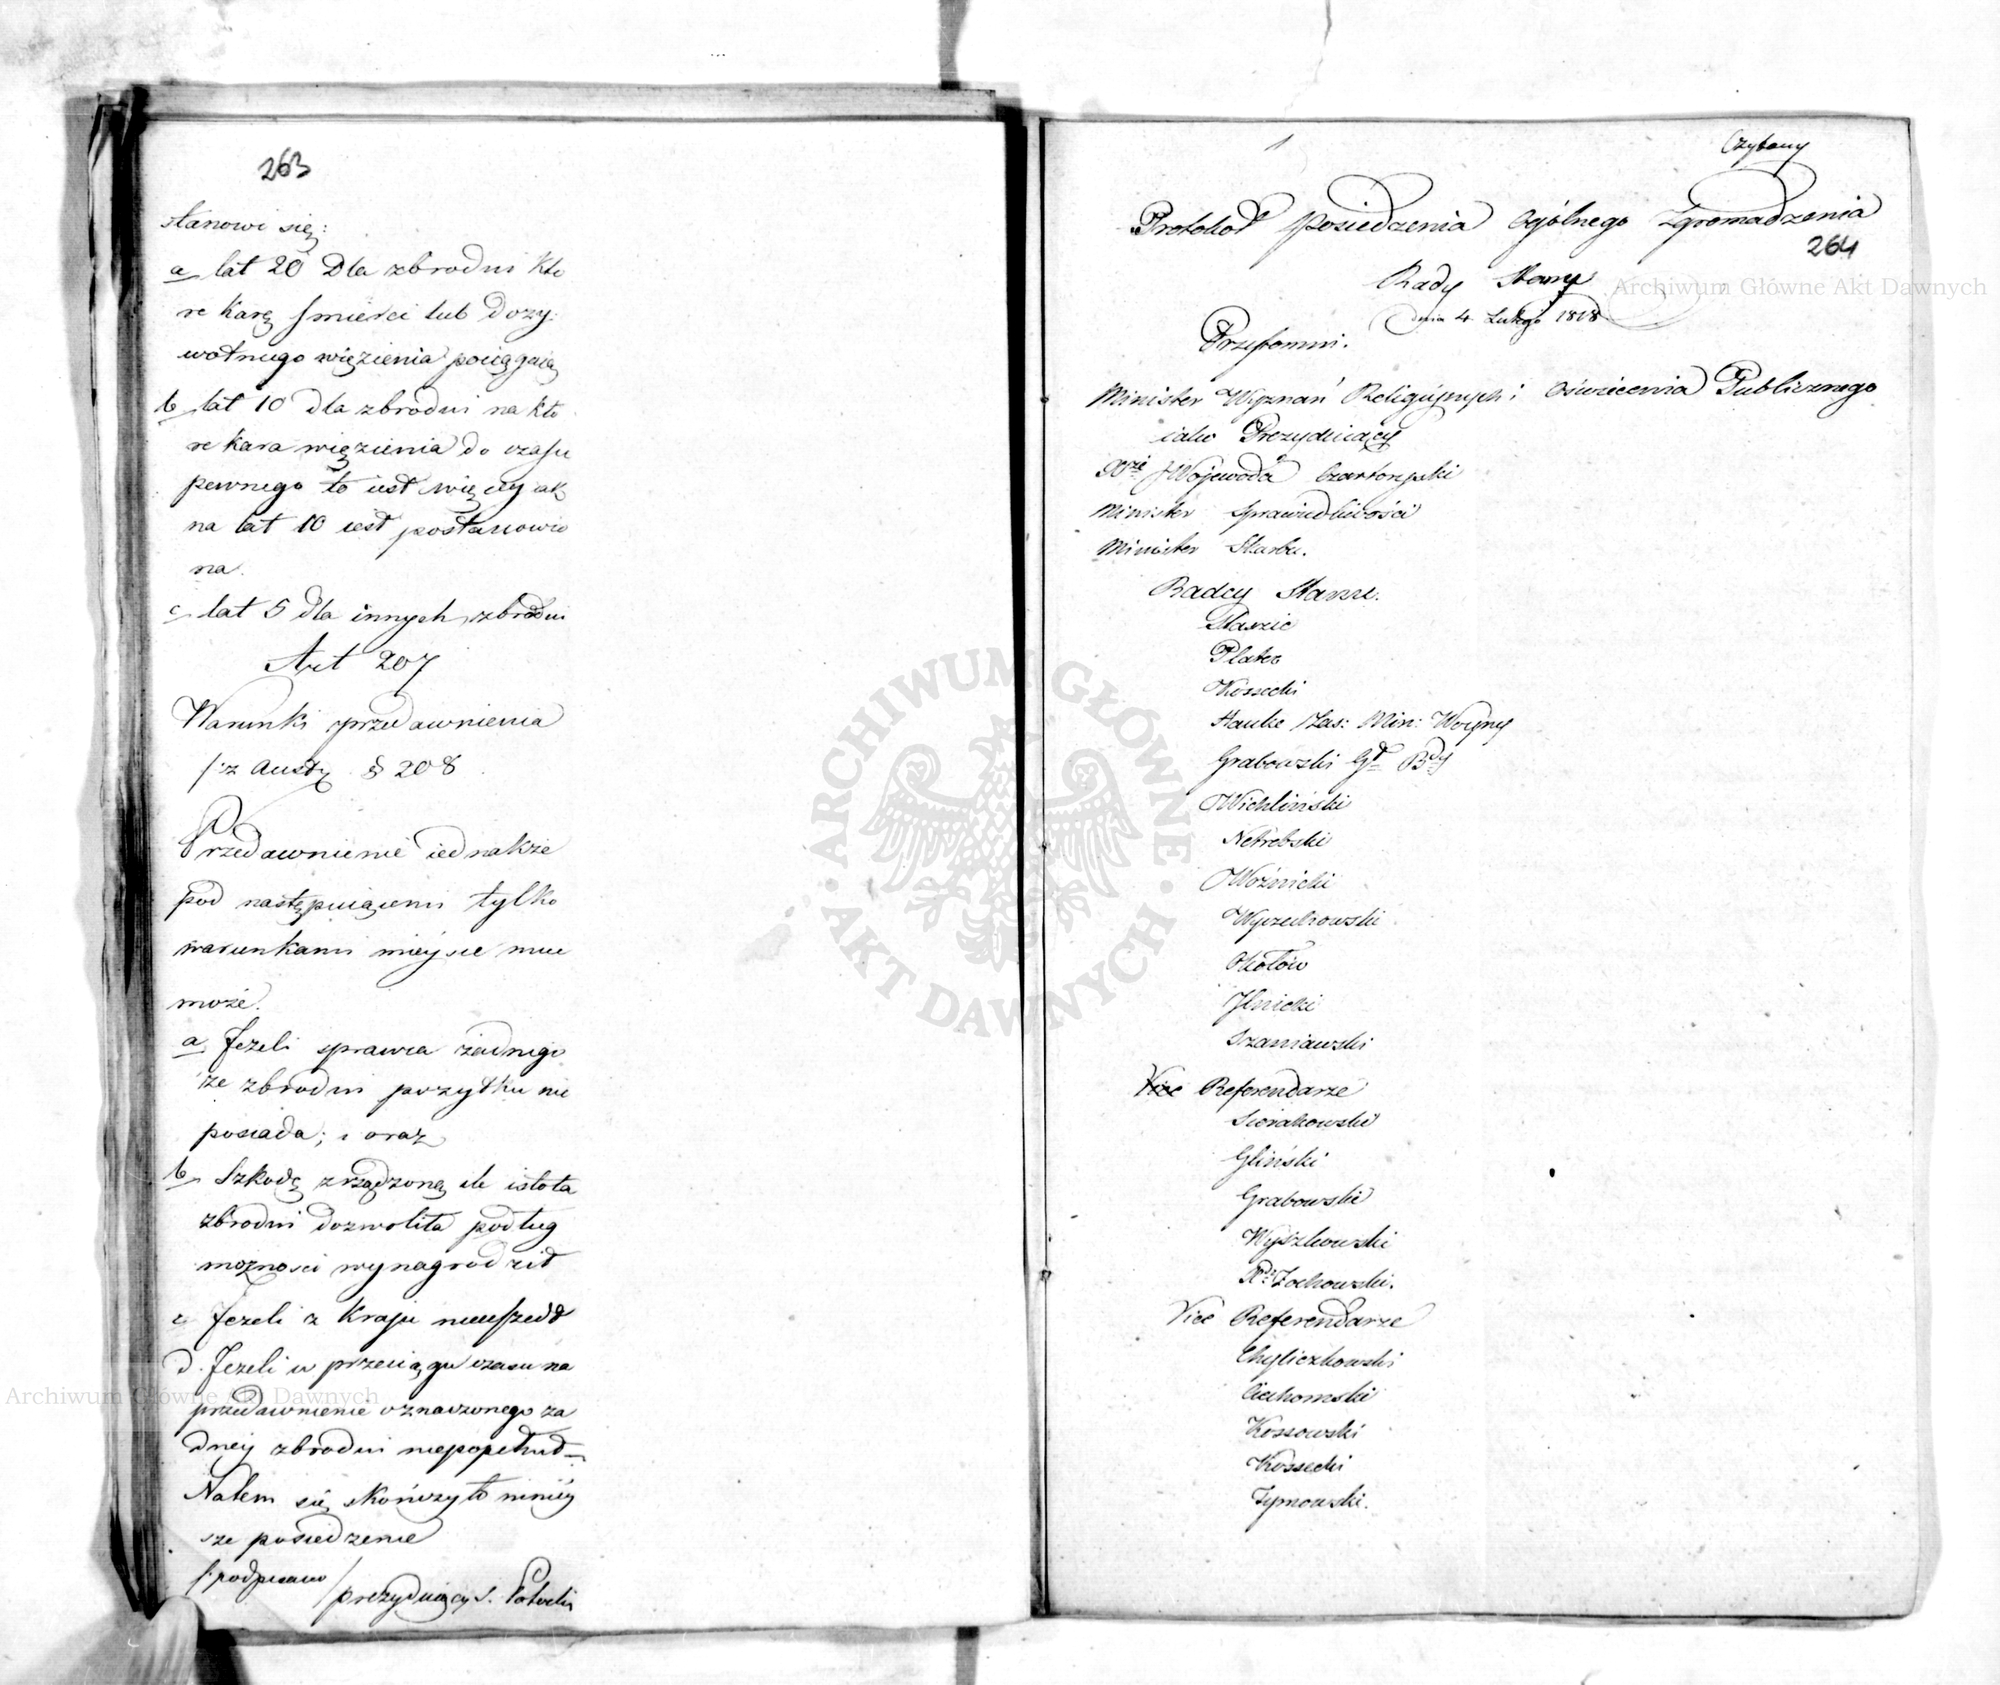 263
stanowi się:
a, lat 20 dla zbrodni któ
re karę śmierci lub dozy:
wotnego więzienia pociągaią
b, lat 10 dla zbrodni na któ
re kara więzienia do czasu
pewnego to iest więcey iak
na lat 10 iest postanowio
na.
c, lat 5 dla innych zbrodni
Art 207
Warunki przedawnienia
/:z Austr. § 208
Przedawnienie iednakże
pod następuiącemi tylko
warunkami mieysce mieć
może.
a, Jeżeli sprawca żadnego
ze zbrodni pozytku nie
posiada; i oraz
b, Szkodę zrządzoną ile istota
zbrodni dozwoliła podług
możnosci wynagrodził
c, Jeżeli z Kraju nieuszedł
d. Jeżeli w przeciągu czasu na
przedawnienie oznaczonego ża
dney zbrodni niepopełnił.
Natem się skończyło ninięy
sze posiedzenie
/:podpisano/ prezyduiący S. Potocki
1
Czytany
Protokół Posiedzenia Ogólnego Zgromadzenia
264
Rady Stanu
dnia 4 Lutego 1818
Przytomni.
Minister Wyznań Religiynych i Oświecenia Publicznego
iako Prezyduiący
Xże Woiewoda Czartoryski
Minister Sprawiedliwości
Minister Skarbu.
Radcy Stanu.
Staszic
Plater
Kossecki
Hauke Zas: Min: Woyny
Grabowski Gł Bdy
Wichliński
Netrebski
Woźnicki
Wyczechowski
Okołów
Ilnicki
Szaniawski
Vice Referendarze
Sierakowski
Gliński
Grabowski
Wyszkowski
Xdz Zochowski.
Vice Referendarze
Chyliczkowski
Ciechomski
Kossowski
Kossecki
Tymowski.
Archiwum Główne Akt Dawnych
Archiwum Główne Akt Dawnych
ARCHIWUM GŁÓWNE · AKT DAWNYCH ·